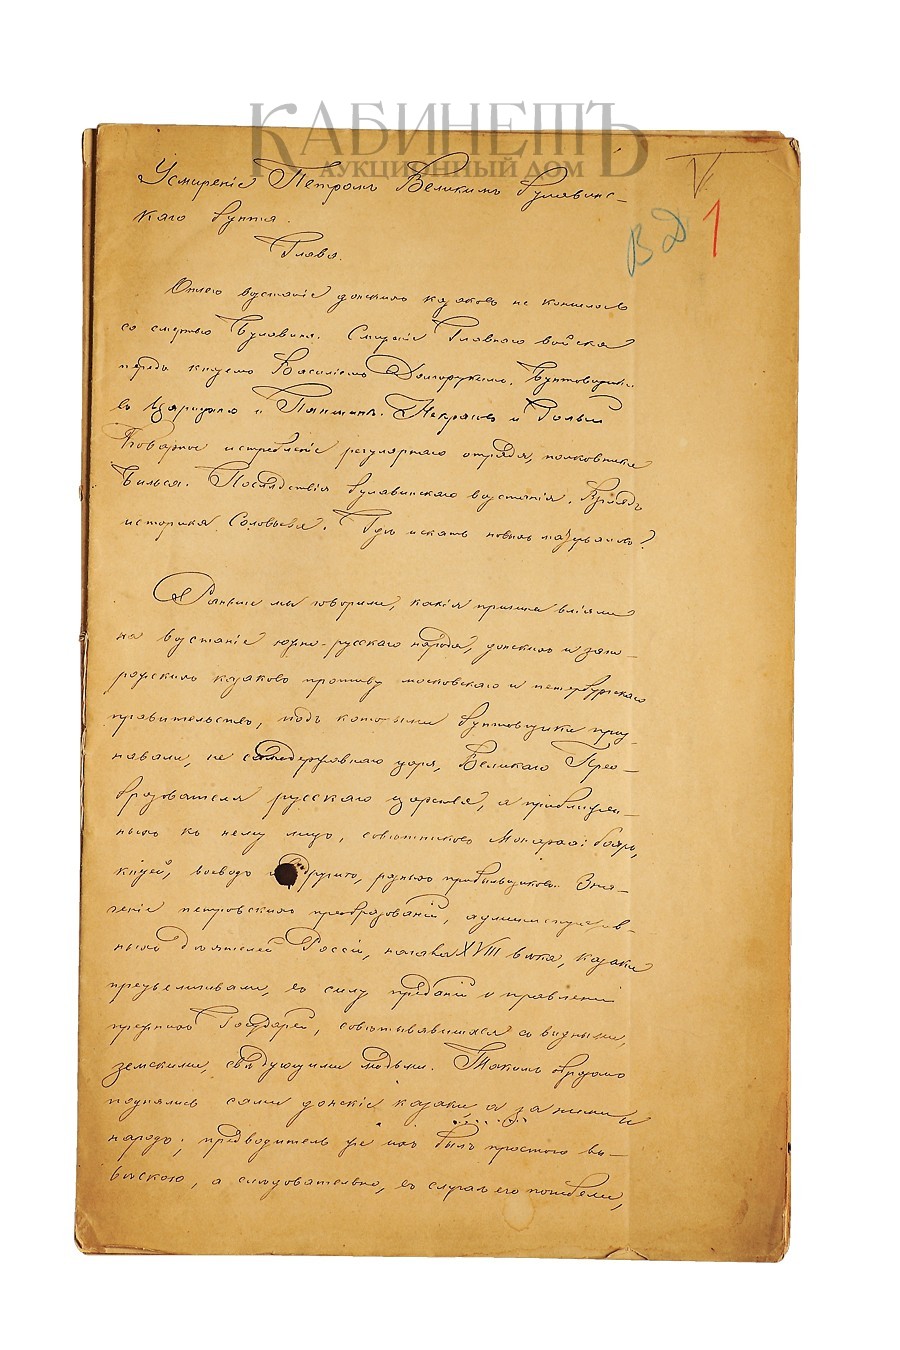 КАБИНЕТЪ
АУКЦИОННЫЙ ДОМ
V
ВД 1
Усмиреніе Петромъ Великимъ булавинс-
каго бунта.
Глава.
Отчего возстаніе донскихъ казаковъ не кончилось
со смертью Булавина. Смиреніе Главнаго войска
передъ княземъ Василіемъ Долгорукимъ. Бунтовщики
въ Царицынѣ и Паншинѣ. Некрасовъ и Голый
истребленіе регулярнаго отряда, полковника
Бильса. Послѣдствія булавинскаго возстанія. Взглядъ
историка Соловьева. Гдѣ искать новыхъ матерьяловъ?
Раньше мы говорили, какія причины вліяли
на возстаніе южно-русскаго народа, донскихъ и запо-
рожскихъ казаковъ противу московскаго и петербургскаго
правительства, подъ которыми бунтовщики приз-
навали, не самодержавнаго царя, Великаго Прео-
бразователя русскаго царства, а приближен-
ныхъ къ нему лицъ, совѣтниковъ Монарха: бояръ,
князей, воеводъ и другихъ, разныхъ прибыльщиковъ. Зна-
ченіе петровскихъ преобразованій, административ-
ныхъ дѣятелей Россіи, начала XVIII вѣка, казаки
преувеличивали, въ силу преданій о правленіи
прежнихъ Государей, совѣтывавшихся съ видными,
земскими, свѣдующими людьми. Такимъ образомъ
поднялись сами донскіе казаки, а за ними и
народъ; предводитель же ихъ былъ простого
а слѣдовательно, въ случаѣ его погибели,